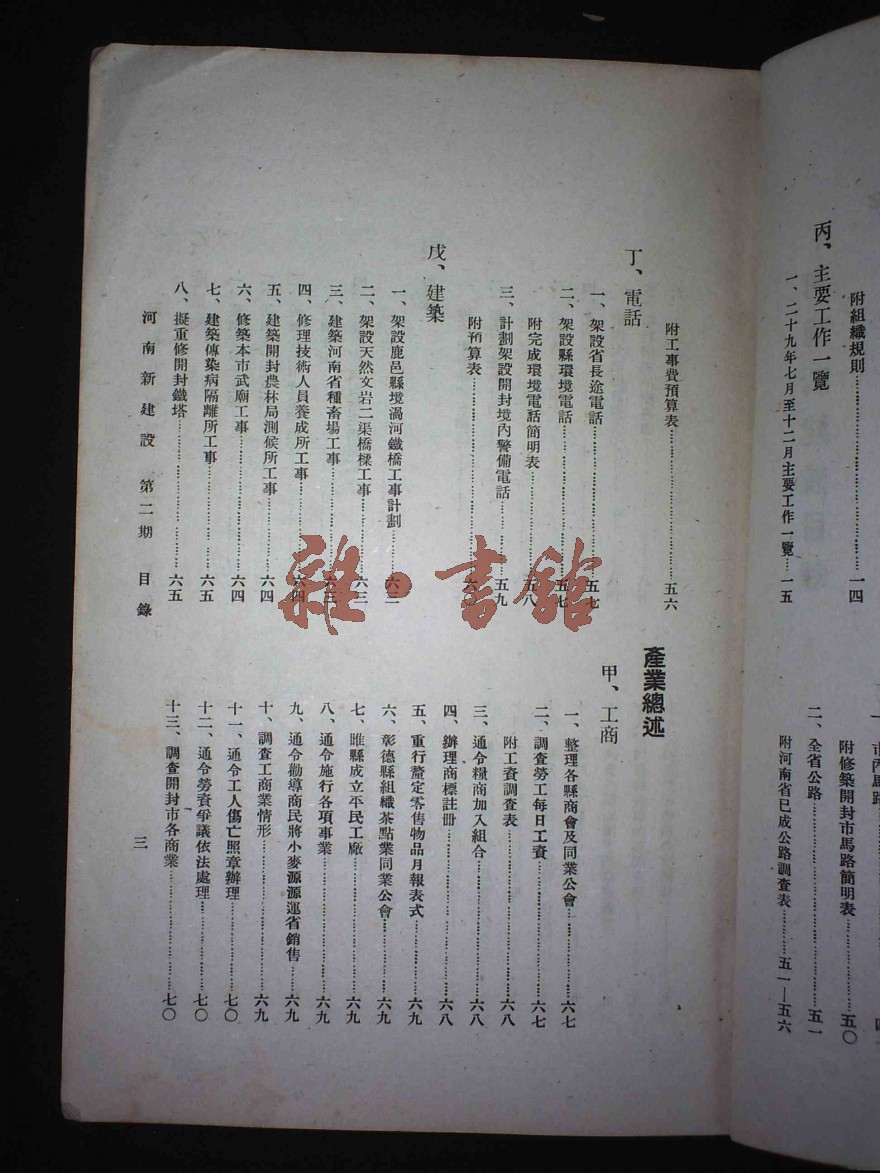 丙、主要工作一覽
附組織規則……一四
一、二十九年七月至十二月主要工作一覽……一五
附修築開封市馬路簡明表……五〇
二、全省公路……五一
附河南省已成公路調查表……五一—五六
附工事費預算表……五六
丁、電話
一、架設省長途電話……五七
二、架設縣環境電話……五七
附完成環境電話簡明表……五八
三、計劃架設開封境內警備電話……五九
附預算表……
戊、建築
一、架設鹿邑縣境渦河鐵橋工事計劃……六三
二、架設天然文岩二渠橋樑工事……六三
三、建築河南省種畜場工事……六三
四、修理技術人員養成所工事……六四
五、建築開封農林局測候所工事……六四
六、修築本市武廟工事……六四
七、建築傳染病隔離所工事……六五
八、擬重修開封鐵塔……六五
產業總述
甲、工商
一、整理各縣商會及同業公會……六七
二、調查勞工每日工資……六七
附工資調查表……六八
三、通令糧商加入組合……六八
四、辦理商標註冊……六八
五、重行釐定零售物品月報表式……六九
六、彰德縣組織茶點業同業公會……六九
七、睢縣成立平民工廠……六九
八、通令施行各項事業……六九
九、通令勸導商民將小麥源源運省銷售……六九
十、調查工商業情形……六九
十一、通令工人傷亡照章辦理……七〇
十二、通令勞資爭議依法處理……七〇
十三、調查開封市各商業……七〇
河南新建設 第二期 目錄
三
雜·書館